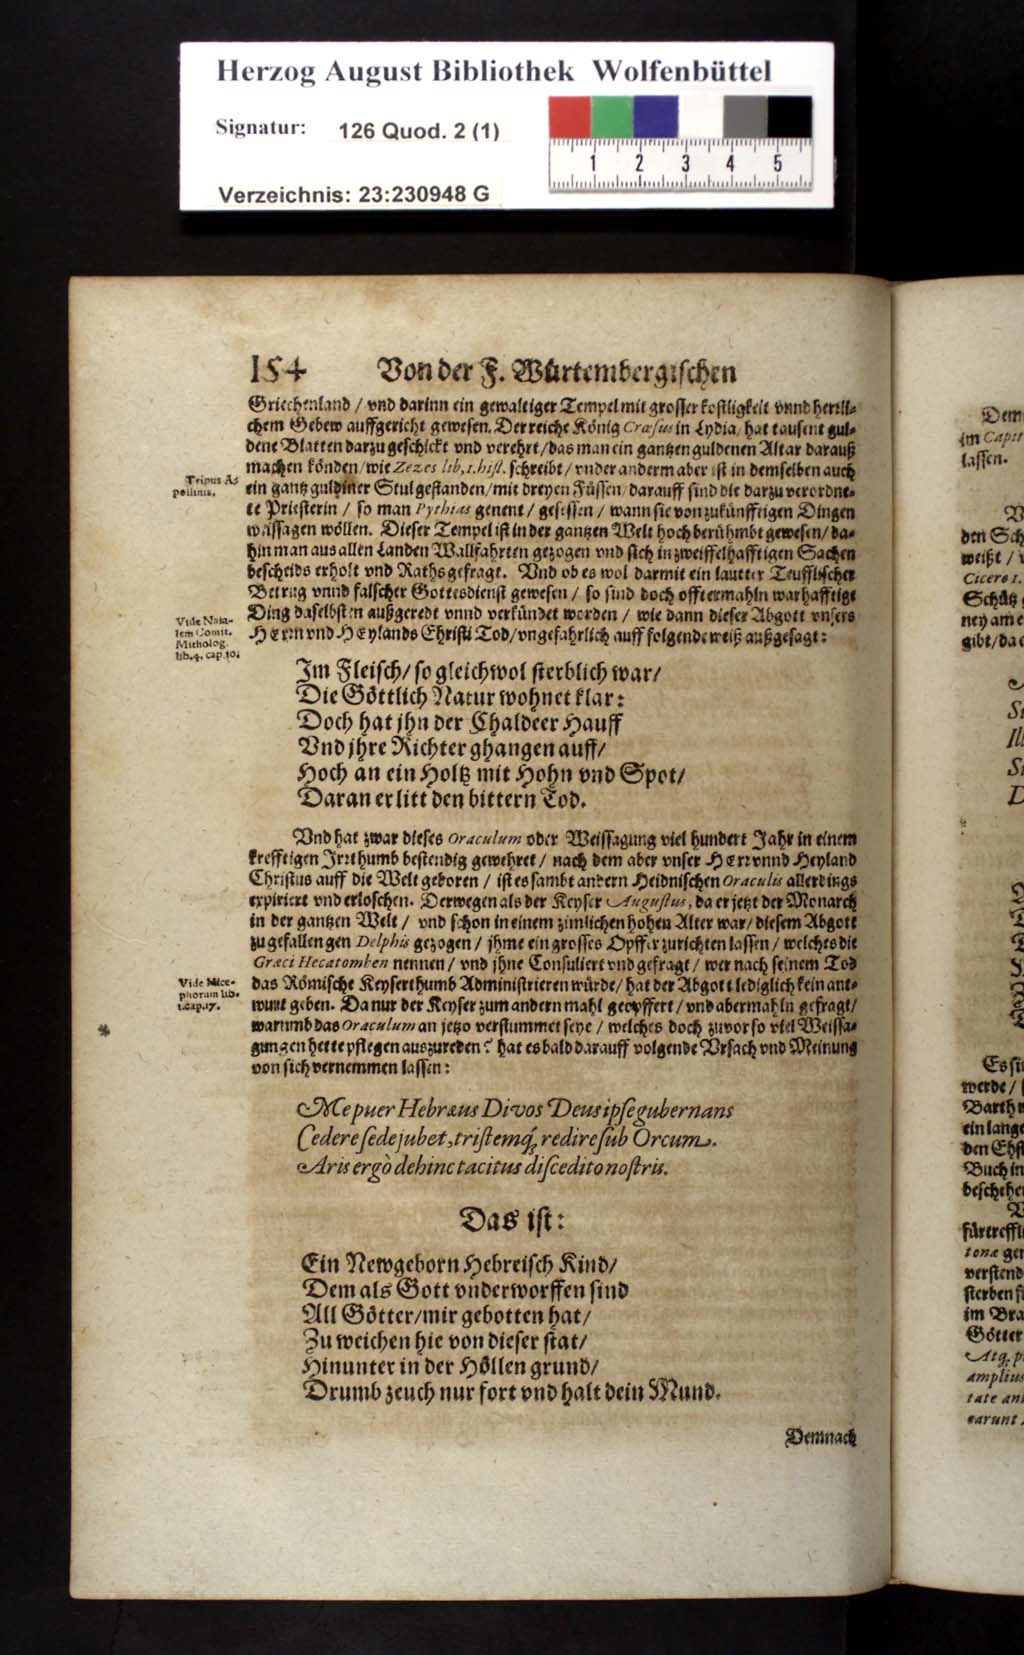 Herzog August Bibliothek Wolfenbüttel
Signatur: 126 Quod. 2 (1)
1 2 3 4 5
Verzeichnis: 23:230948 G
154 Von der F. Würtembergischen
Griechenland / vnd darinn ein gewaltiger Tempel mit grosser kostligkeit vnnd herzli-
chem Gebew auffgericht gewesen. Der reiche König Cræsus in Lydia / hat tausent gul-
dene Blatten darzu geschickt vnd verehrt / das man ein gantzen guldenen Altar darauß
machen könden / wie Zezes lib. 1. hist. schreibt / vnder anderm aber ist in demselben auch
Tripus Apollinis.
ein gantz guldiner Stul gestanden / mit dreyen Füssen / darauff sind die darzu verordne-
te Priesterin / so man Pythias genent / gesessen / wann sie von zukünfftigen Dingen
weissagen wöllen. Dieser Tempel ist in der gantzen Welt hoch berühmbt gewesen / da-
hin man aus allen Landen Wallfahrten gezogen vnd sich in zweiffelhafftigen Sachen
bescheids erholt vnd Raths gefragt. Vnd ob es wol darmit ein lautter Teufflischer
Betrug vnnd falscher Gottesdienst gewesen / so sind doch offtermahln warhafftige
Ding daselbsten außgeredt vnnd verkündet worden / wie dann dieser Abgott vnsers
Vide Nata-
lem Comit.
Mitholog.
lib. 4. cap. 10.
HErrn vnd HEylands Christi Tod / vngefahrlich auff folgende weiß außgesagt:
Im Fleisch / so gleichwol sterblich war /
Die Göttlich Natur wohnet klar:
Doch hat jhn der Chaldeer Hauff
Vnd jhre Richter ghangen auff /
Hoch an ein Holtz mit Hohn vnd Spot /
Daran er litt den bittern Tod.
Vnd hat zwar dieses Oraculum oder Weissagung viel hundert Jahr in einem
krefftigen Irrthumb bestendig gewehret / nach dem aber vnser HErr vnnd Heyland
Christus auff die Welt geboren / ist es sambt andern Heidnischen Oraculis allerdings
expiriert vnd erloschen. Derwegen als der Keyser Augustus, da er jetzt der Monarch
in der gantzen Welt / vnd schon in einem zimlichen hohen Alter war / diesem Abgott
zu gefallen gen Delphis gezogen / jhme ein grosses Opffer zurichten lassen / welches die
Græci Hecatomben nennen / vnd jhne Consuliert vnd gefragt / wer nach seinem Tod
Vide Nice-
phorum lib.
1. cap. 17.
das Römische Keyserthumb Administrieren würde / hat der Abgott lediglich kein ant-
wurt geben. Da nur der Keyser zum andern mahl geopffert / vnd abermahln gefragt /
warumb das Oraculum an jetzo verstummet seye / welches doch zuvor so viel Weissa-
gungen hette pflegen auszureden? hat es bald darauff volgende Vrsach vnd Meinung
von sich vernemmen lassen:
Me puer Hebræus Divos Deus ipse gubernans
Cedere sede jubet, tristemq́; redire sub Orcum.
Aris ergò dehinc tacitus discedito nostris.
Das ist:
Ein Newgeborn Hebreisch Kind /
Dem als Gott vnderworffen sind
All Götter / mir gebotten hat /
Zu weichen hie von dieser stat /
Hinunter in der Höllen grund /
Drumb zeuch nur fort vnd halt dein Mund.
Demnach